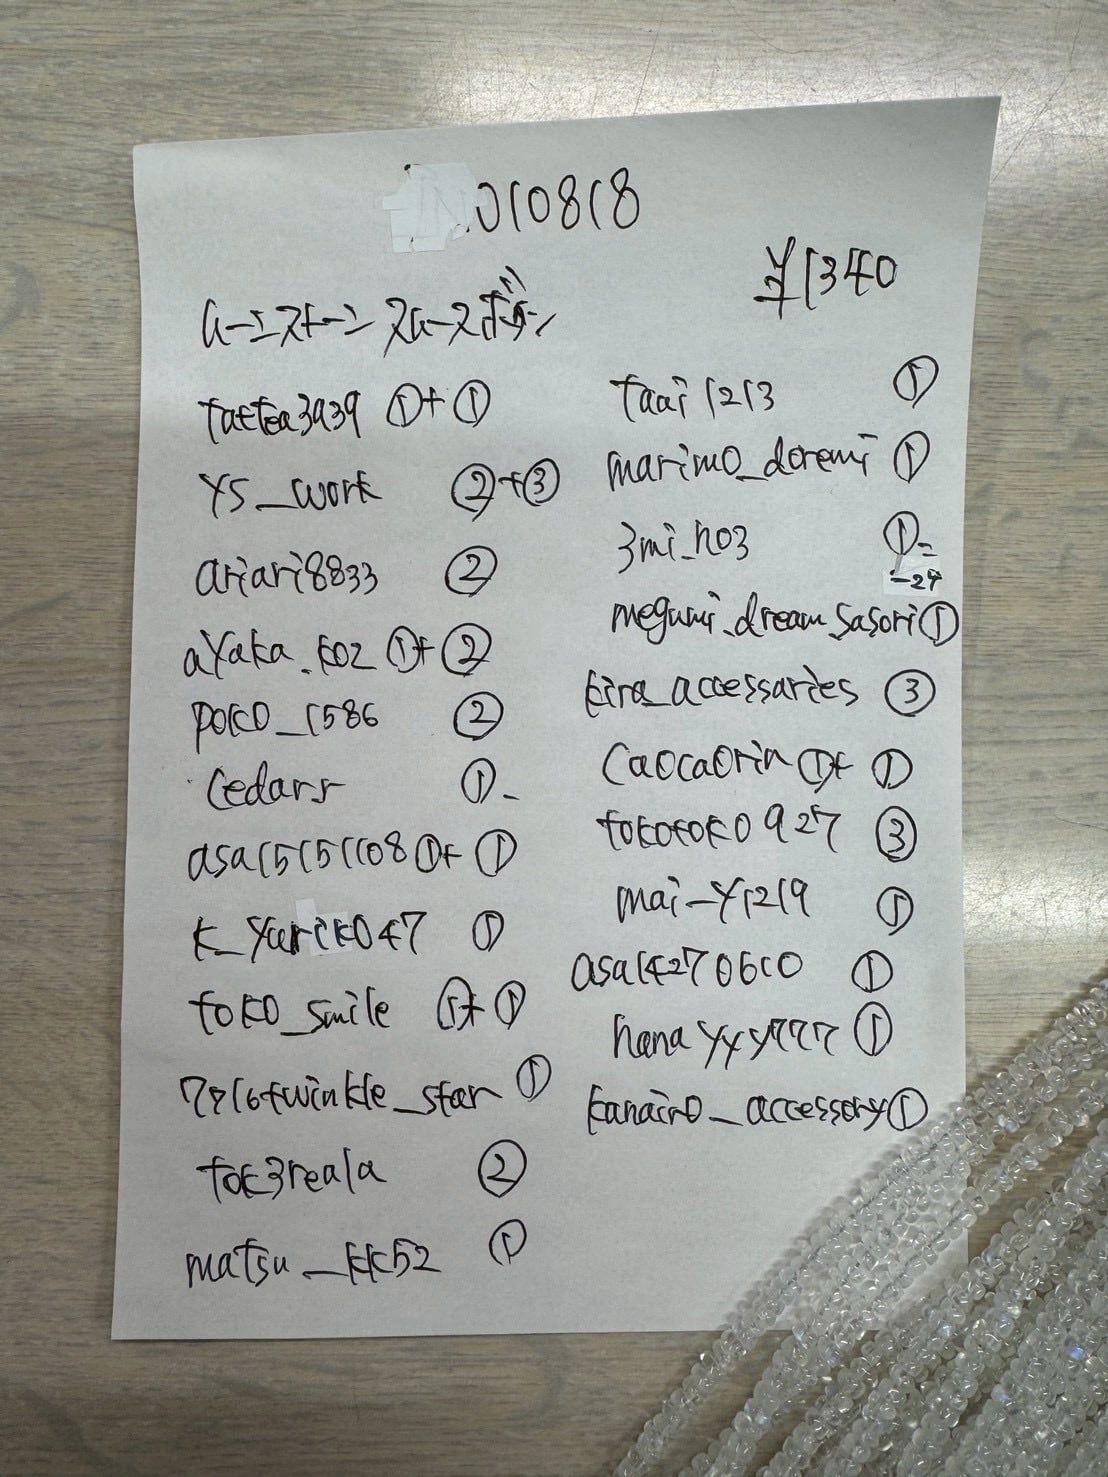 010818
¥1340
taetea3939 ①+①
ys_work ②+③
ariari8833 ②
ayaka.k02 ①+②
poko_1586 ②
cedarr ①-
asa15151108 ①+①
k_yuriko47 ①
toko_smile ①+①
7716twinkle_star ①
tok3reala ②
matsu_kk52 ①
taai1213 ①
marimo_doremi ①
3mi_ho3 ①=
-24
megumi_dream_sasori ①
kira_accessaries ③
caocaorin ①+①
tokotoko0927 ③
mai-y1219 ①
asa14270610 ①
hanayyy777 ①
kanairo_accessory ①